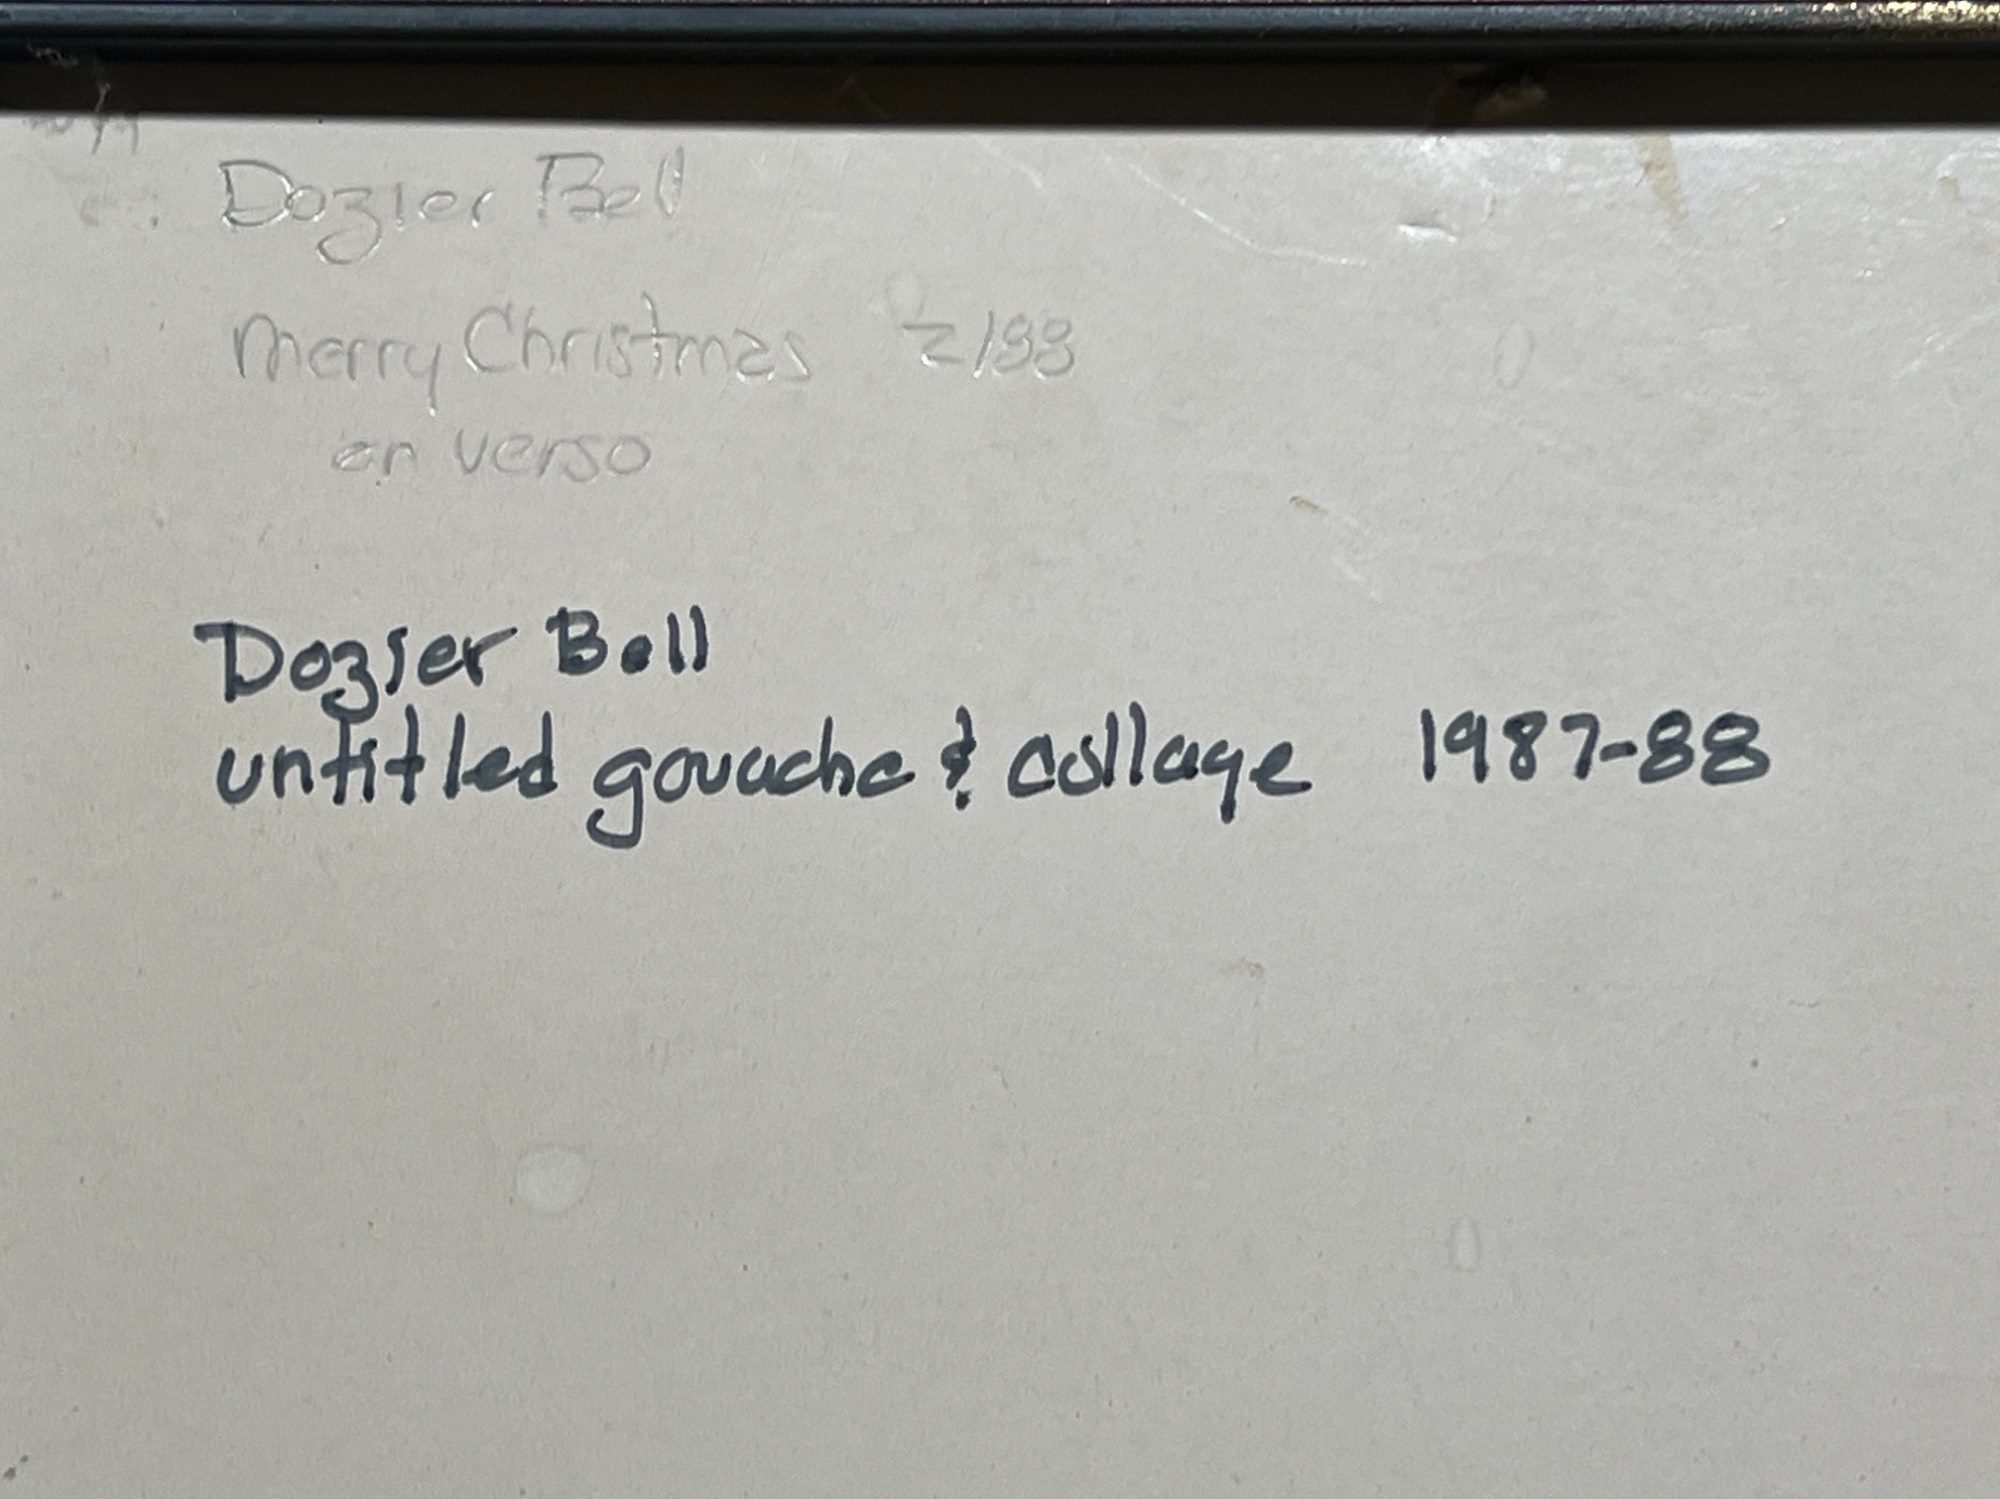 Dozier Bell
Merry Christmas 2/88
on verso
Dozier Bell
untitled gouache & collage 1987-88